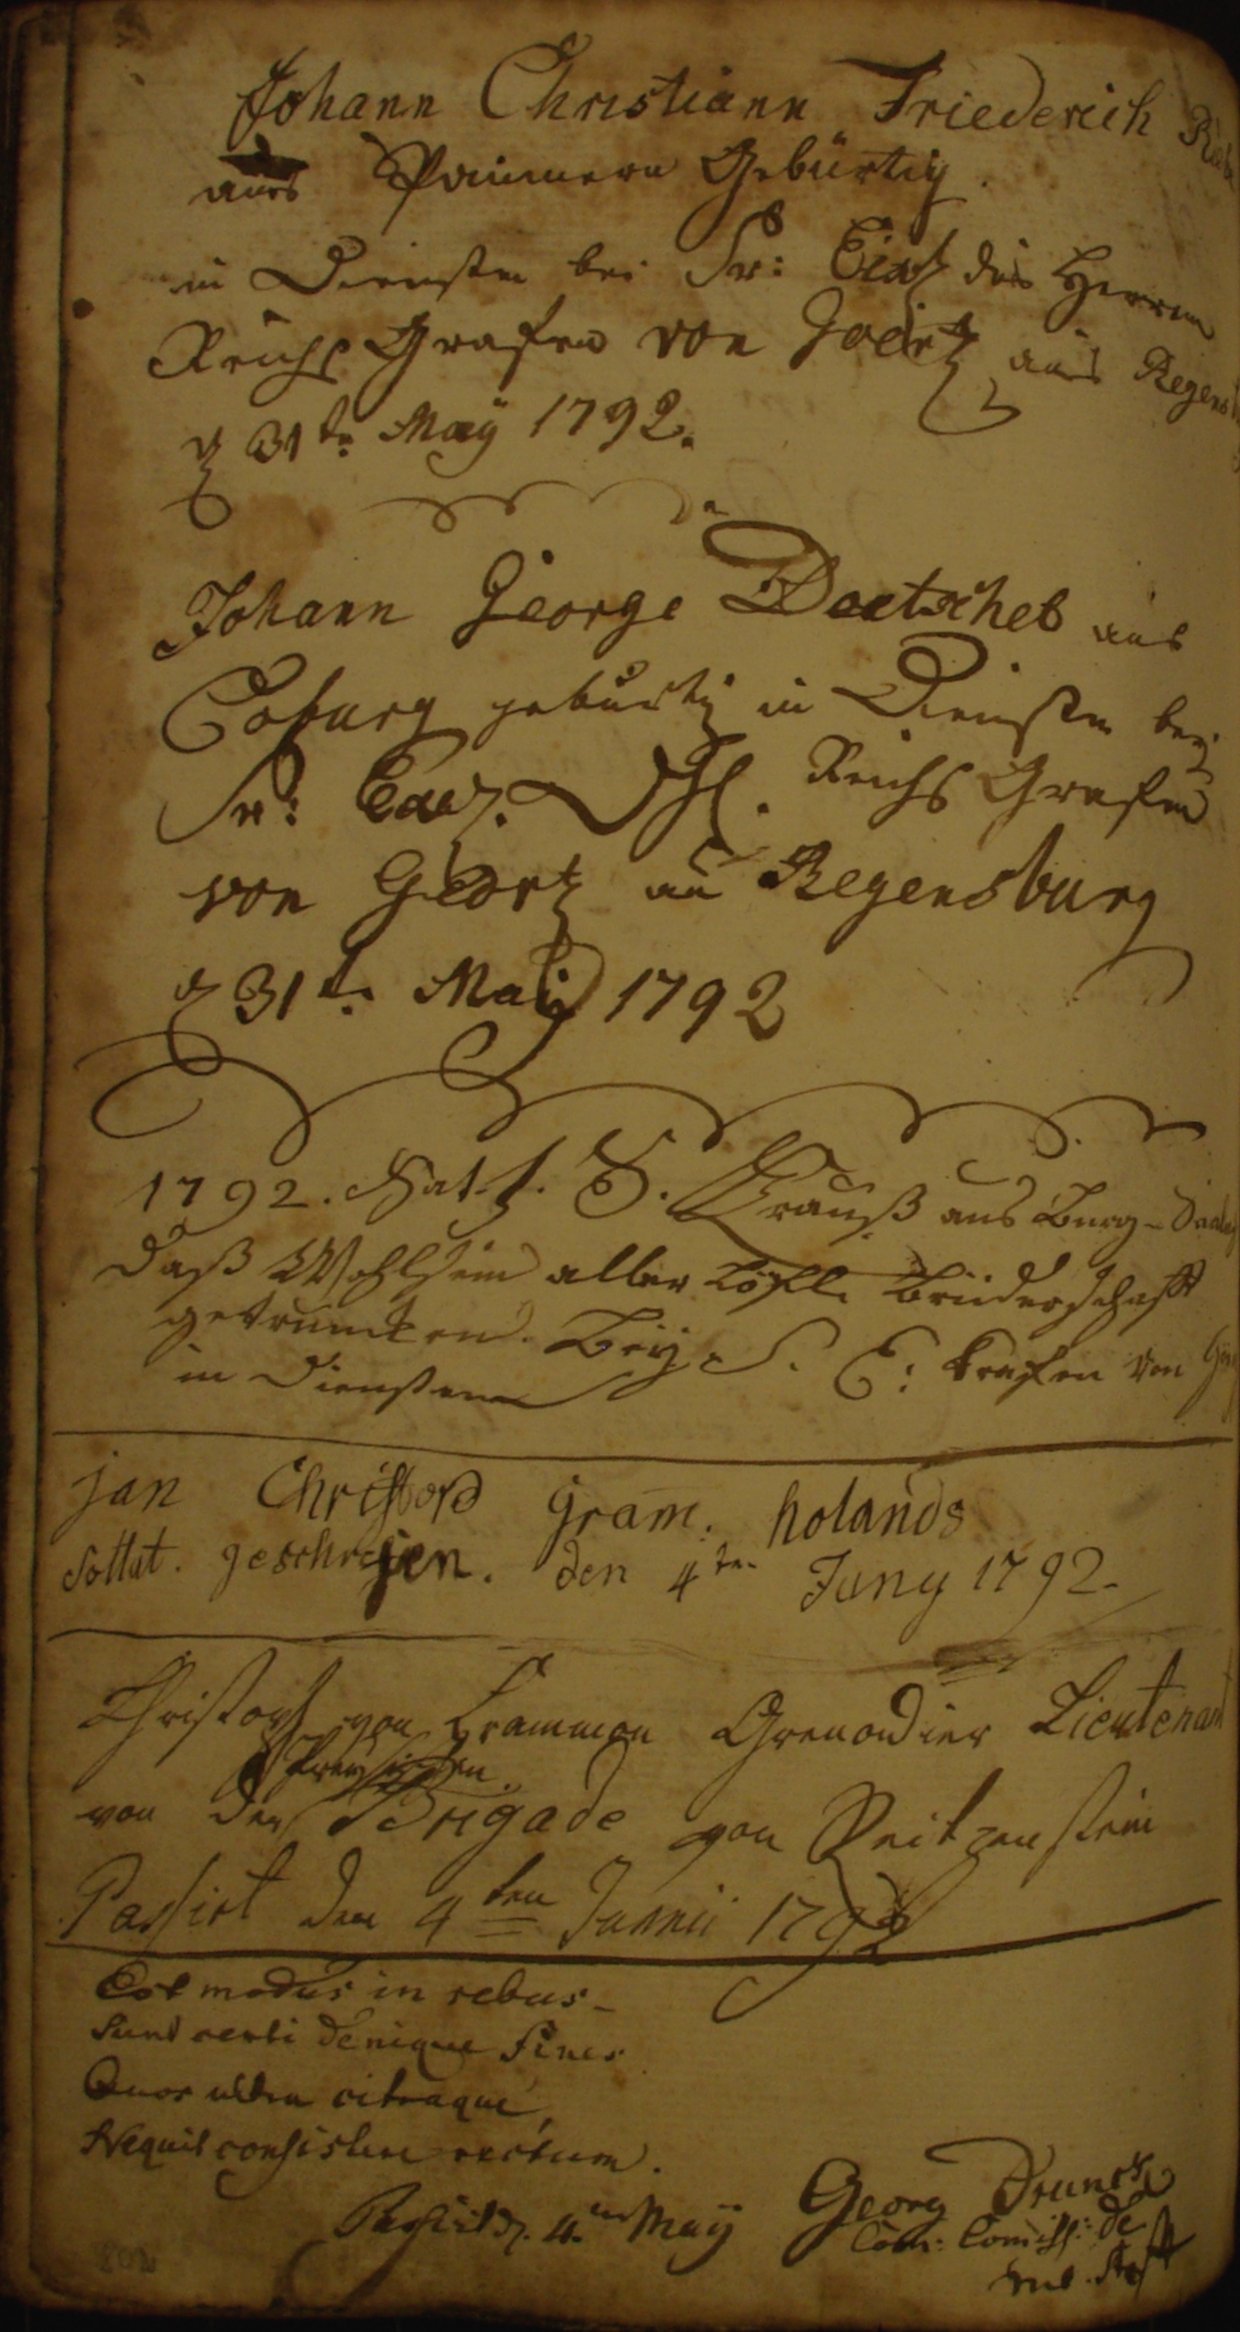 Johann Christiann Friederich
aus Pommern Gebürtig.
in Diensten bei Sr: des Herren
Reichs Grafen von Goertz aus Regens
d 31te May 1792.
Johann George aus
Coburg gebürtig in Diensten bey
Sr: Reichs Grafen
von Goertz aus Regensburg
d 31te May 1792
1792. Hat J. S. Krauß aus Burg-
Daß Wohlsein aller Löbl. Brüderschafft
getruncken. Bey S. E: Grafen von
in Diensten
jan Christoph gram. holands
Soltat. den 4ten Juny 1792.
Christoph von Crammon Grenadier Lieutenant
Preusischen
von der Brigade von Reitzenstein
Passirt den 4ten Junii 1792
Est modus in rebus –
Sunt certi denique fines
Quos ultra citraque,
Nequit consistere rectum.
Passirt d. 4ten May Georg